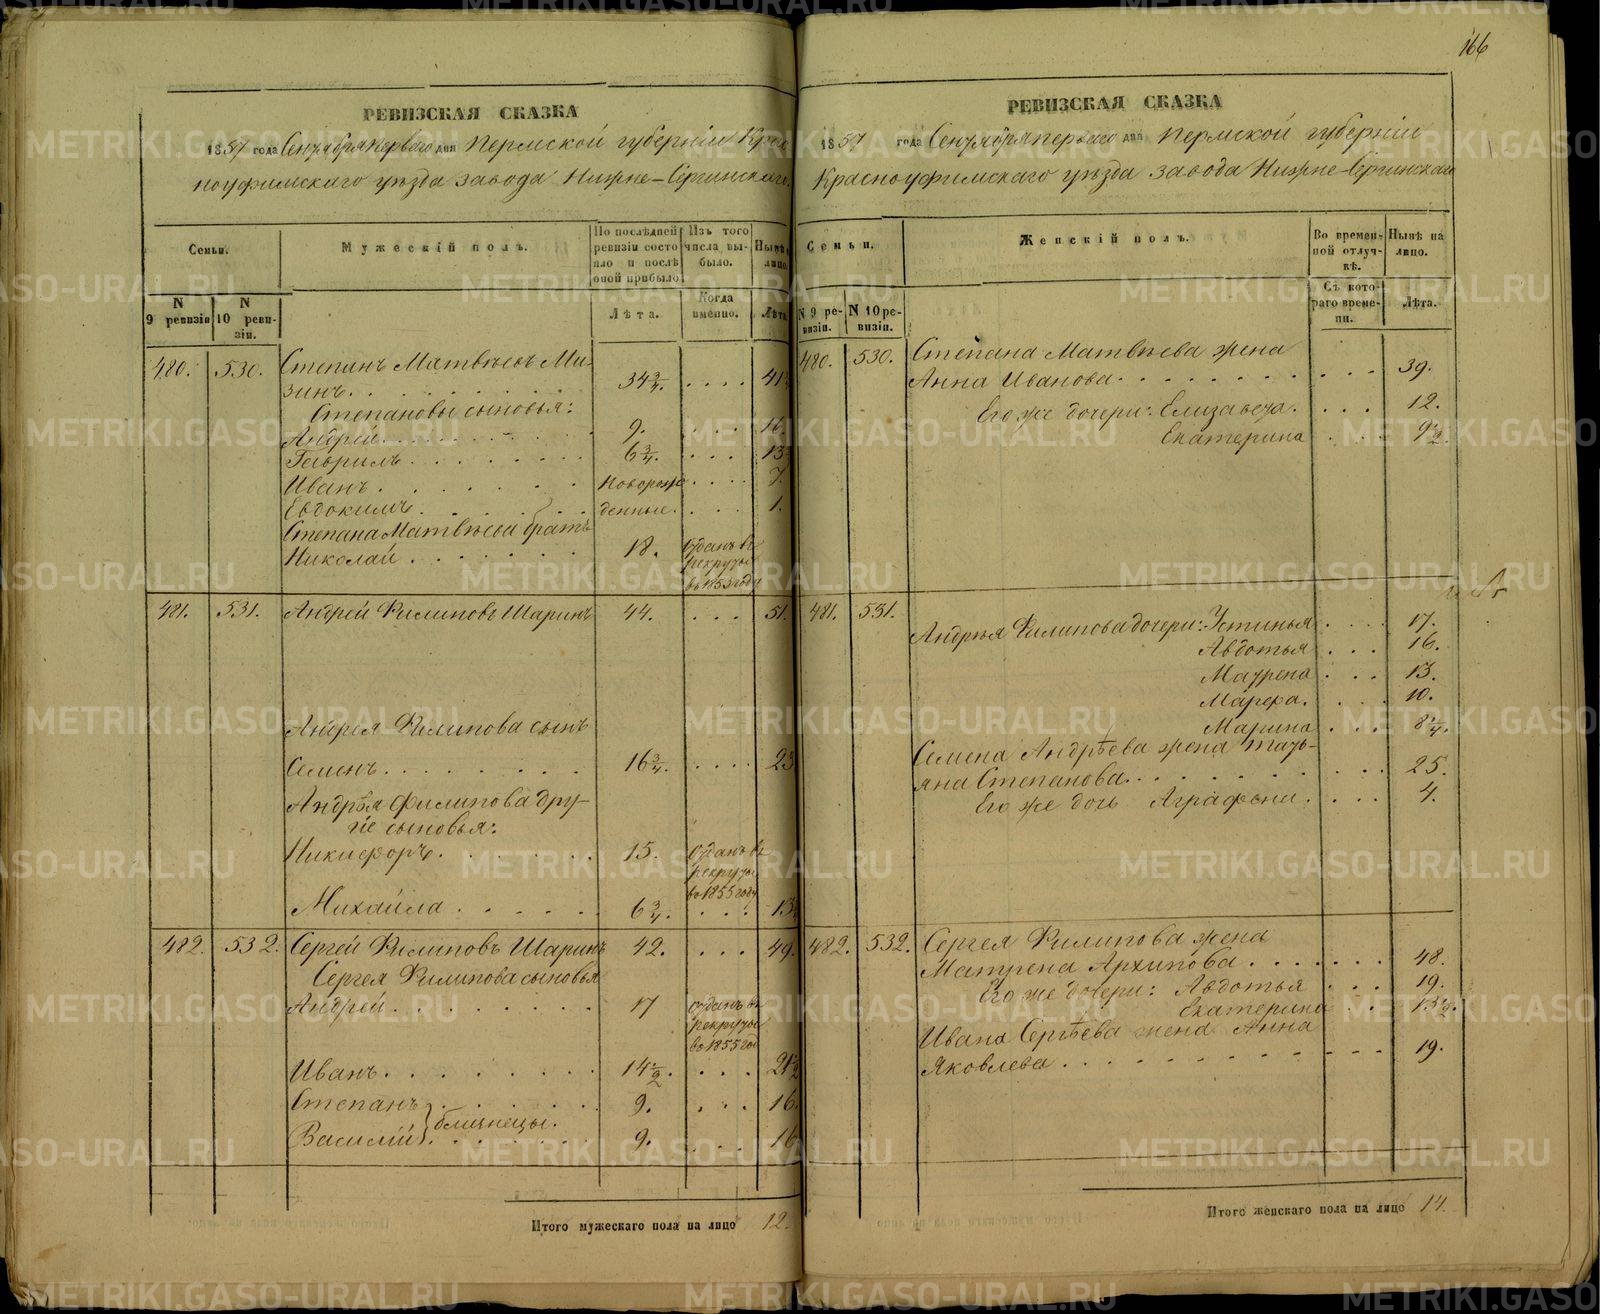 166
РЕВИЗСКАЯ СКАЗКА
1857 года Сентября перваго дня Пермской губернiи Крас-
ноуфимскаго уѣзда завода Нижне-Сергинскаго.
Семьи.
Мужескiй полъ.
По послѣдней ревизiи состояло и послѣ оной прибыло
Изъ того числа выбыло.
Нынѣ на лицо.
N 9 ревизiи
N 10 ревизiи.
Лѣта.
Когда именно.
Лѣта.
480. 530. Степанъ Матвѣевъ Ми-
зинъ. 34¾. 41
Степановы сыновья:
Андрей. 9. 16
Гаврилъ. 6¾. 13
Иванъ. Новорож- 7.
Евдокимъ. денные. 1.
Степана Матвѣева братъ
Николай. 18. Отданъ въ рекруты въ 1853 году
481. 531. Андрей Филиповъ Шаринъ 44. 51.
Андрея Филипова сынъ
Семенъ. 16¾. 23
Андрѣя Филипова дру-
гiе сыновья:
Никифоръ. 15. отданъ въ рекруты въ 1855 году
Михайла. 6¾. 13
482. 532. Сергей Филиповъ Шаринъ 42. 49.
Сергея Филипова сыновья
Андрей. 17 отданъ въ рекруты въ 1855 го
Иванъ. 14½. 21½
Степанъ 9. 16.
близнецы.
Василiй 9. 16
Итого мужескаго пола на лицо 12.
РЕВИЗСКАЯ СКАЗКА
1857 года Сентября перваго дня Пермской губернiи
Красноуфимскаго уѣзда завода Нижне-Сергинскаго
Семьи.
Женскiй полъ.
Во временной отлучкѣ.
Нынѣ на лицо.
N 9 ревизiи.
N 10 ревизiи.
Съ котораго времени.
Лѣта.
480. 530. Степана Матвѣева жена
Анна Иванова. 39.
Его же дочери: Елизавета. 12.
Екатерина 9½.
481. 531.
Андрѣя Филипова дочери: Устинья 17.
Авдотья 16.
Матрена 13.
Марфа. 10.
Марина 8¼.
Семена Андрѣева жена Тать-
яна Степанова. 25.
Его же дочь Аграфена. 4.
482. 532. Сергея Филипова жена
Матрена Архипова. 48.
Его же дочери: Авдотья 19.
Екатерина 13½.
Ивана Сергѣева жена Анна
Яковлева. 19.
Итого женскаго пола на лицо 14.
METRIKI.GASO-URAL.RU